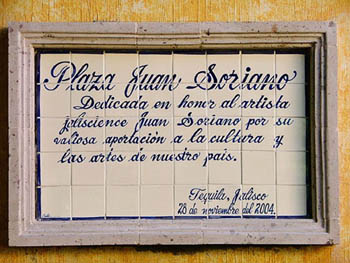 Plaza Juan Soriano
Dedicada en honor al artista
jaliscience Juan Soriano por su
valiosa aportación a la cultura y
las artes de nuestro país.
Tequila, Jalisco
28 de noviembre del 2004.